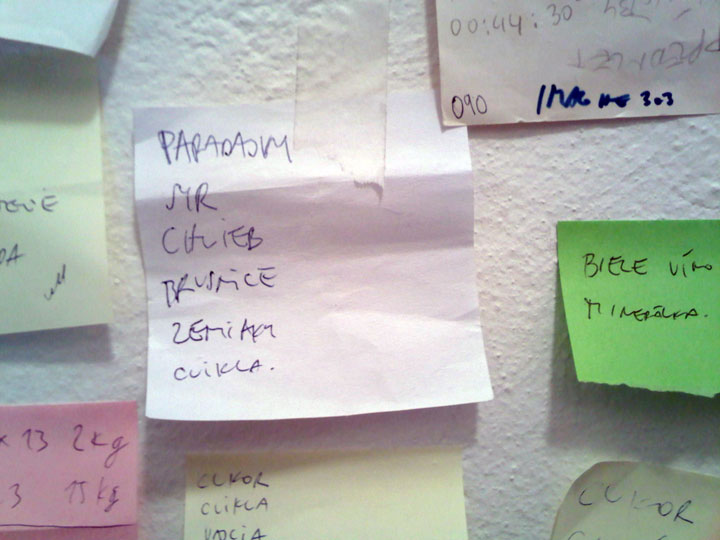 00:44:30
090 IMAGINE 303
PARADAJKY
SYR
CHLIEB
BRUSNICE
ZEMIAKY
CVIKLA.
BIELE VÍNO
MINERÁLKA.
x 13 2kg
3 15kg
CUKOR
CVIKLA
CUKOR